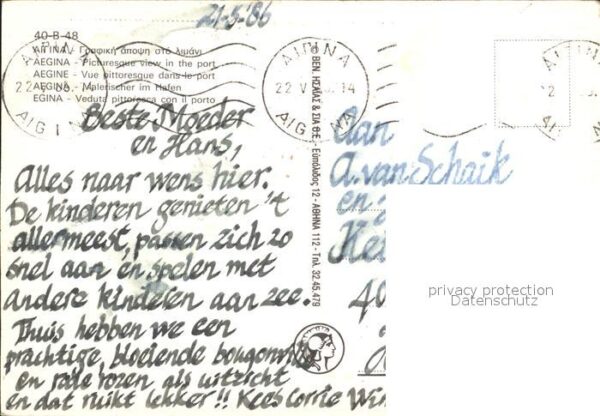 21-5-'86
40-B-48
ΑΙΓΙΝΑ - Γραφική άποψη στό λιμάνι
AEGINA - Picturesque view in the port
AEGINE - Vue pittoresque dans le port
AEGINA - Malerischer im Hafen
EGINA - Veduta pittoresca con il porto
ΑΙΓΙΝΑ
22 V 14
AIGINA
Beste Moeder
en Hans,
Alles naar wens hier.
De kinderen genieten 't
allermeest, passen zich zo
snel aan en spelen met
andere kinderen aan zee.
Thuis hebben we een
prachtige, bloeiende
en rode rozen als uitzicht
en dat ruikt lekker!! Kees Corrie Wim
ΒΕΝ. ΗΣΑΪΑΣ & ΣΙΑ Ο.Ε. - Εὐπόλιδος 12 - ΑΘΗΝΑ 112 - Τηλ. 32.45.479
Aan
A. van Schaik
en
40
privacy protection
Datenschutz